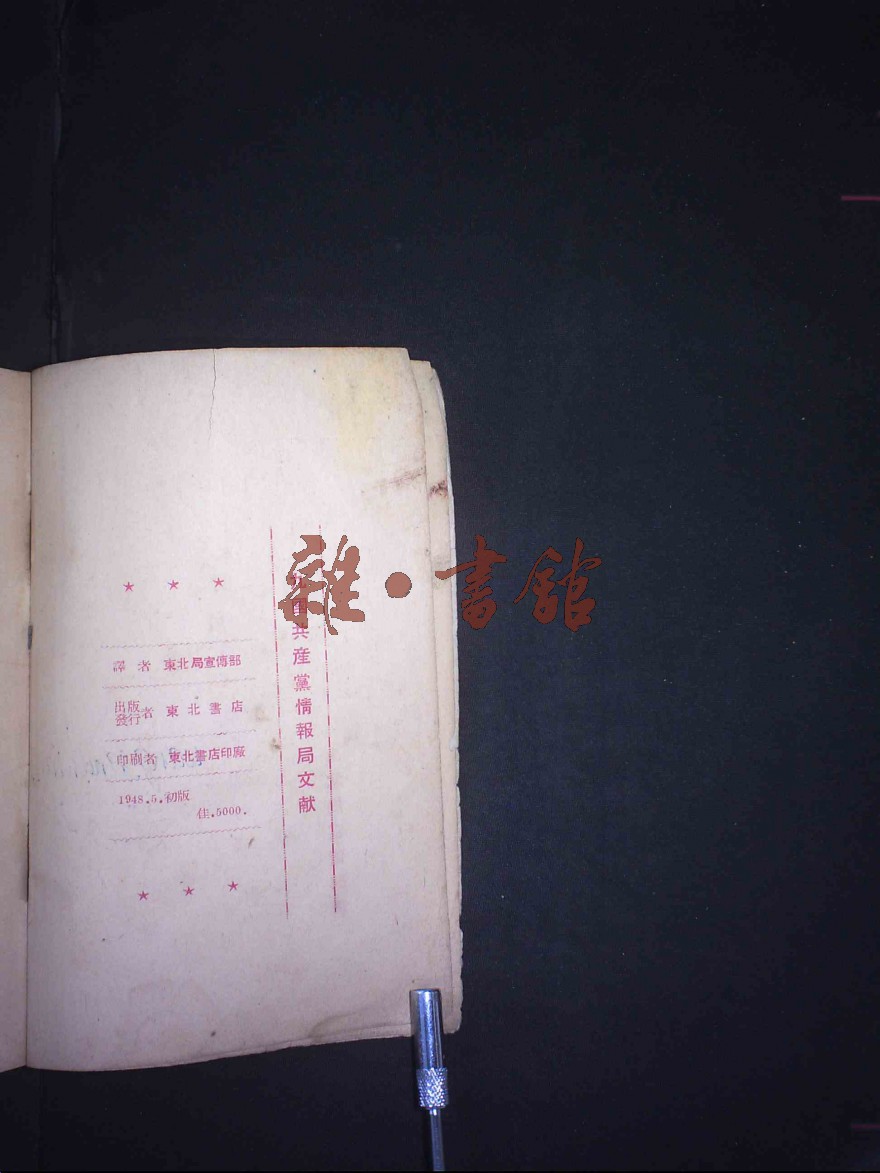 國共産黨情報局文献
★ ★ ★
譯者 東北局宣傳部
出版
發行者 東北書店
印刷者 東北書店印廠
1948.5.初版
佳.5000.
★ ★ ★
雜·書館